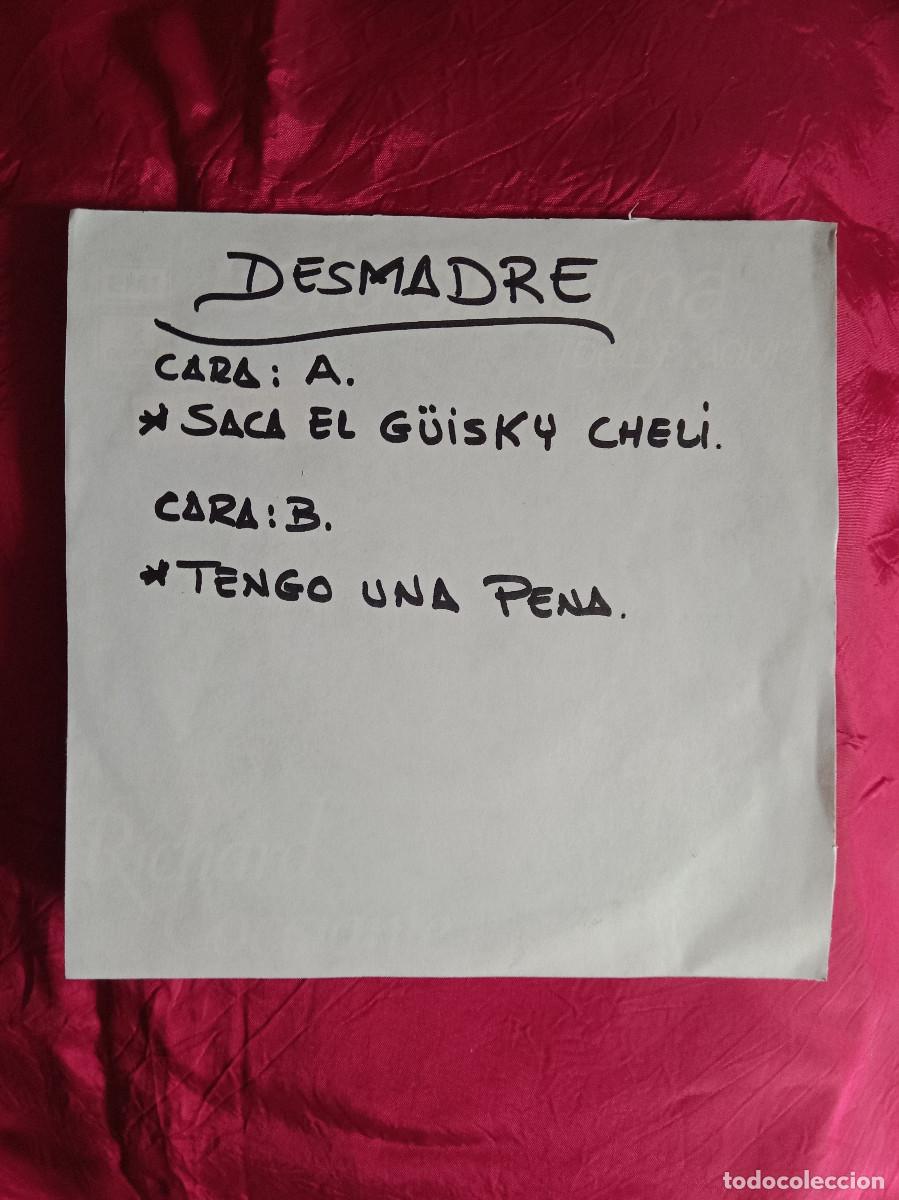 DESMADRE
CARA: A.
* SACA EL GÜISKY CHELI.
CARA: B.
* TENGO UNA PENA.
Richard
todocoleccion